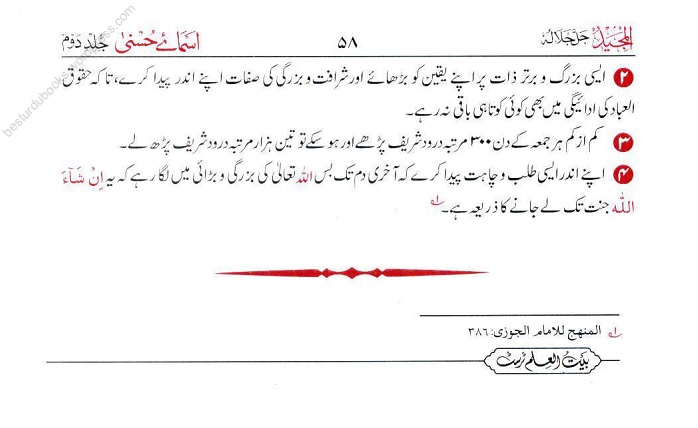 المجید جل جلالہ ۵۸ اسمائے حسنیٰ جلد دوم
۲ ایسی بزرگ و برتر ذات پر اپنے یقین کو بڑھائے اور شرافت و بزرگی کی صفات اپنے اندر پیدا کرے، تاکہ حقوق
العباد کی ادائیگی میں بھی کوئی کوتاہی باقی نہ رہے۔
۳ کم از کم ہر جمعہ کے دن ۳۰۰ مرتبہ درود شریف پڑھے اور ہو سکے تو تین ہزار مرتبہ درود شریف پڑھ لے۔
۴ اپنے اندر ایسی طلب و چاہت پیدا کرے کہ آخری دم تک بس اللہ تعالیٰ کی بزرگی و بڑائی میں لگا رہے کہ یہ اِنْ شَآءَ
اللّٰہ جنت تک لے جانے کا ذریعہ ہے۔ ۱ے
۱ے المنهج للامام الجوزی: ۳۸۶
بیت العلم ٹرسٹ
besturdubooks.wordpress.com